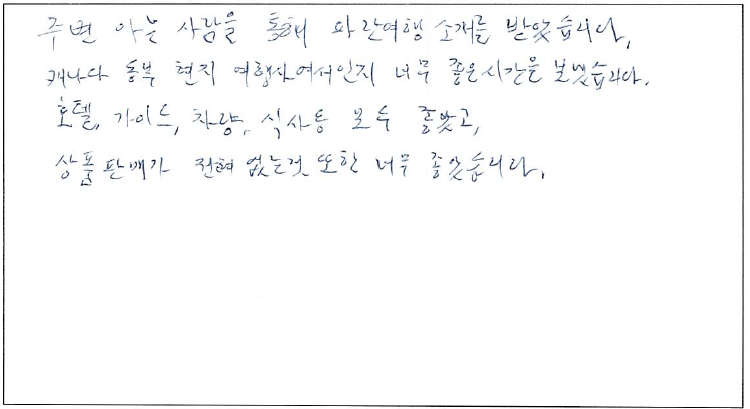 주변 아는 사람을 통해 파란여행 소개를 받았습니다.
캐나다 동부 현지 여행사여서인지 너무 좋은시간을 보냈습니다.
호텔, 가이드, 차량, 식사등 모두 좋았고,
상품판매가 전혀 없는것 또한 너무 좋았습니다.